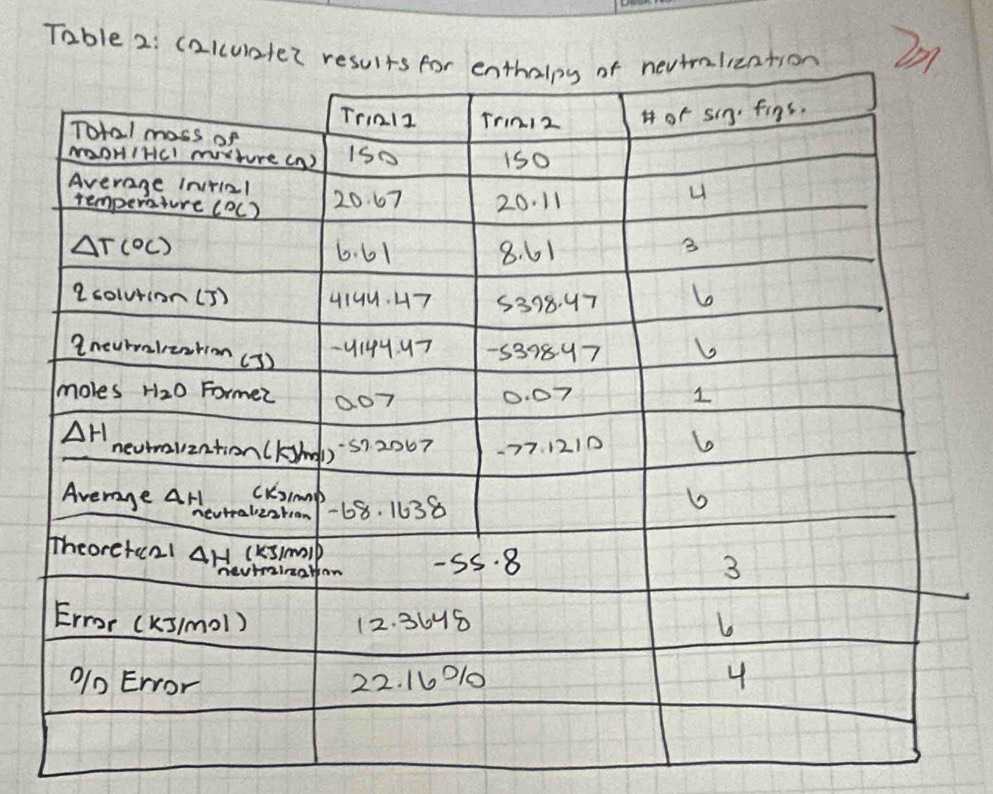 Table 2: Calculated results for enthalpy of neutralization
Trial 1 Trial 2 # of sig. figs.
Total mass of
NaOH/HCl mixture (g) 150 150
Average initial
temperature (°C) 20.67 20.11 4
ΔT (°C) 6.61 8.61 3
q solution (J) 4144.47 5398.47 6
q neutralization (J) -4144.47 -5398.47 6
moles H2O Formed 0.07 0.07 1
ΔH neutralization (kJ/mol) -59.2067 -77.1210 6
Average ΔH neutralization (kJ/mol) -68.1638 6
Theoretical ΔH neutralization (kJ/mol) -55.8 3
Error (kJ/mol) 12.3648 6
% Error 22.16% 4